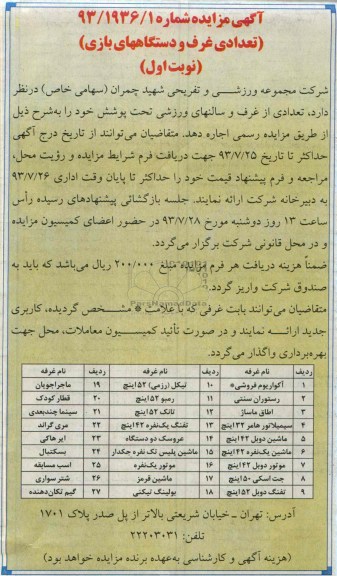 آگهی مزایده شماره ۹۳/۱۹۳۶/۱
(تعدادی غرف و دستگاههای بازی)
(نوبت اول)
شرکت مجموعه ورزشی و تفریحی شهید چمران (سهامی خاص) درنظر
دارد، تعدادی از غرف و سالنهای ورزشی تحت پوشش خود را به‌شرح ذیل
از طریق مزایده رسمی اجاره دهد. متقاضیان می‌توانند از تاریخ درج آگهی
حداکثر تا تاریخ ۹۳/۷/۲۵ جهت دریافت فرم شرایط مزایده و رؤیت محل،
مراجعه و فرم پیشنهاد قیمت خود را حداکثر تا پایان وقت اداری ۹۳/۷/۲۶
به دبیرخانه شرکت ارائه نمایند. جلسه بازگشائی پیشنهادهای رسیده رأس
ساعت ۱۳ روز دوشنبه مورخ ۹۳/۷/۲۸ در حضور اعضای کمیسیون مزایده
و در محل قانونی شرکت برگزار می‌گردد.
ضمناً هزینه دریافت هر فرم مزایده مبلغ ۲۰۰/۰۰۰ ریال می‌باشد که باید به
صندوق شرکت واریز گردد.
متقاضیان می‌توانند بابت غرفی که با علامت * مشخص گردیده، کاربری
جدید ارائه نمایند و در صورت تأئید کمیسیون معاملات، محل جهت
بهره‌برداری واگذار می‌گردد.
ردیف نام غرفه ردیف نام غرفه ردیف نام غرفه
۱ آکواریوم فروشی* ۱۰ تیکل (رزمی) ۵۲ اینچ ۱۹ ماجراجویان
۲ رستوران سنتی ۱۱ رمبو ۵۲ اینچ ۲۰ قطار کودک
۳ اطاق ماساژ ۱۲ تانک ۵۲ اینچ ۲۱ سینما چندبعدی
۴ سیمیلاتور هامر ۳۲ اینچ ۱۳ تفنگ یک‌نفره ۴۲ اینچ ۲۲ مری گراند
۵ ماشین دوبل ۴۲ اینچ ۱۴ عروسک دو دستگاه ۲۳ ایرهاکی
۶ ماشین یک‌نفره ۴۲ اینچ ۱۵ ماشین پلیس تک نفره جکدار ۲۴ بسکتبال
۷ موتور دوبل ۴۲ اینچ ۱۶ موتور یک‌نفره ۲۵ اسب مسابقه
۸ جت اسکی ۵۰ اینچ ۱۷ ماشین قرمز ۲۶ شتر سواری
۹ تفنگ دوبل ۵۲ اینچ ۱۸ بولینگ تیکتی ۲۷ گیم تکان‌دهنده
آدرس: تهران ـ خیابان شریعتی بالاتر از پل صدر پلاک ۱۷۰۱
تلفن: ۲۲۲۰۳۰۳۱
(هزینه آگهی و کارشناسی به‌عهده برنده مزایده خواهد بود)